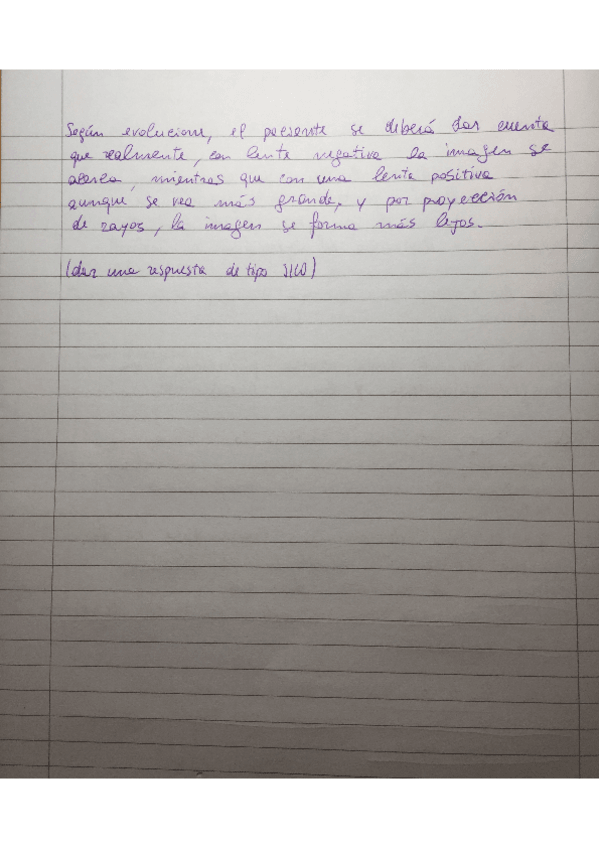 Según evolucione, el paciente se deberá dar cuenta
que realmente, con lente negativa la imagen se
acerca, mientras que con una lente positiva
aunque se vea más grande, y por proyección
de rayos, la imagen se forma más lejos.
(dar una respuesta de tipo SILO)